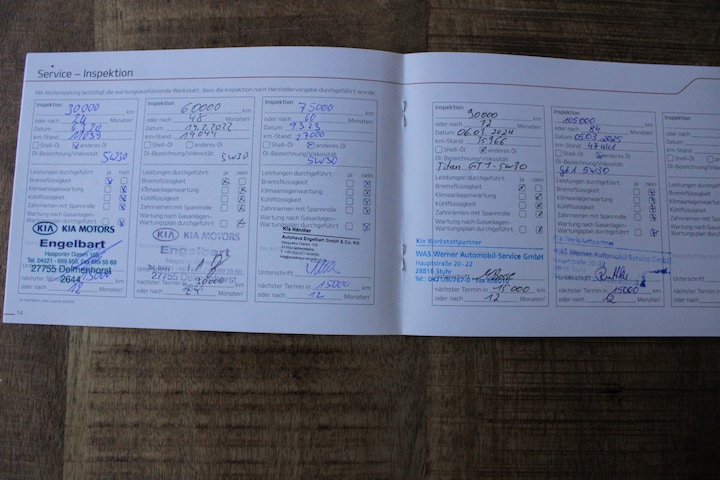 Service – Inspektion
Mit Abstempelung bestätigt die wartungsausführende Werkstatt, dass die Inspektion nach Herstellervorgabe durchgeführt wurde.
Inspektion
30000 km
oder nach 24 Monaten
Datum
km-Stand 11033
Shell-Öl anderes Öl
Öl-Bezeichnung/Viskosität
5W30
Leistungen durchgeführt: ja nein
Bremsflüssigkeit
Klimaanlagenwartung
Kühlflüssigkeit
Zahnriemen mit Spannrolle
Wartung nach Gasanlagen-
Wartungsplan durchgeführt
KIA KIA MOTORS
Engelbart
Hasporter Damm 155
27755 Delmenhorst
2644
nächster Termin in km
oder nach 12 Monaten
Inspektion
60000 km
oder nach 48 Monaten
Datum 14.2.2022
km-Stand 19044
Shell-Öl anderes Öl
Öl-Bezeichnung/Viskosität
5W30
Leistungen durchgeführt: ja nein
Bremsflüssigkeit
Klimaanlagenwartung
Kühlflüssigkeit
Zahnriemen mit Spannrolle
Wartung nach Gasanlagen-
Wartungsplan durchgeführt
KIA KIA MOTORS
Engelbart
27755 Delmenhorst
nächster Termin in 30000 km
oder nach 24 Monaten
Inspektion
75000 km
oder nach 60 Monaten
Datum 9.3.23
km-Stand 27000
Shell-Öl anderes Öl
Öl-Bezeichnung/Viskosität
5W30
Leistungen durchgeführt: ja nein
Bremsflüssigkeit
Klimaanlagenwartung
Kühlflüssigkeit
Zahnriemen mit Spannrolle
Wartung nach Gasanlagen-
Wartungsplan durchgeführt
Kia Händler
Autohaus Engelbart GmbH & Co. KG
Unterschrift
nächster Termin in 15000 km
oder nach 12 Monaten
14
Inspektion
90000 km
oder nach 72 Monaten
Datum 06.03.2024
km-Stand 35966
Shell-Öl anderes Öl
Öl-Bezeichnung/Viskosität
Titan GT1 5W30
Leistungen durchgeführt: ja nein
Bremsflüssigkeit
Klimaanlagenwartung
Kühlflüssigkeit
Zahnriemen mit Spannrolle
Wartung nach Gasanlagen-
Wartungsplan durchgeführt
Kia Werkstattpartner
WAS Werner Automobil-Service GmbH
Hauptstraße 20 - 22
28816 Stuhr
nächster Termin in 15000 km
oder nach 12 Monaten
Inspektion
105000 km
oder nach 84 Monaten
Datum 05.03.2025
km-Stand
Shell-Öl anderes Öl
Öl-Bezeichnung/Viskosität
5W30
Leistungen durchgeführt: ja nein
Bremsflüssigkeit
Klimaanlagenwartung
Kühlflüssigkeit
Zahnriemen mit Spannrolle
Wartung nach Gasanlagen-
Wartungsplan durchgeführt
Kia Werkstattpartner
WAS Werner Automobil-Service GmbH
Unterschrift
nächster Termin in 15000 km
oder nach 12 Monaten
Inspektion
oder nach
Datum
km-Stand
Shell-Öl
Öl-Bezeichnung
Leistungen
Bremsflüssigkeit
Klimaanlagen
Kühlflüssigkeit
Zahnriemen
Wartung nach
Wartungsplan
Unterschrift
nächster
oder nach